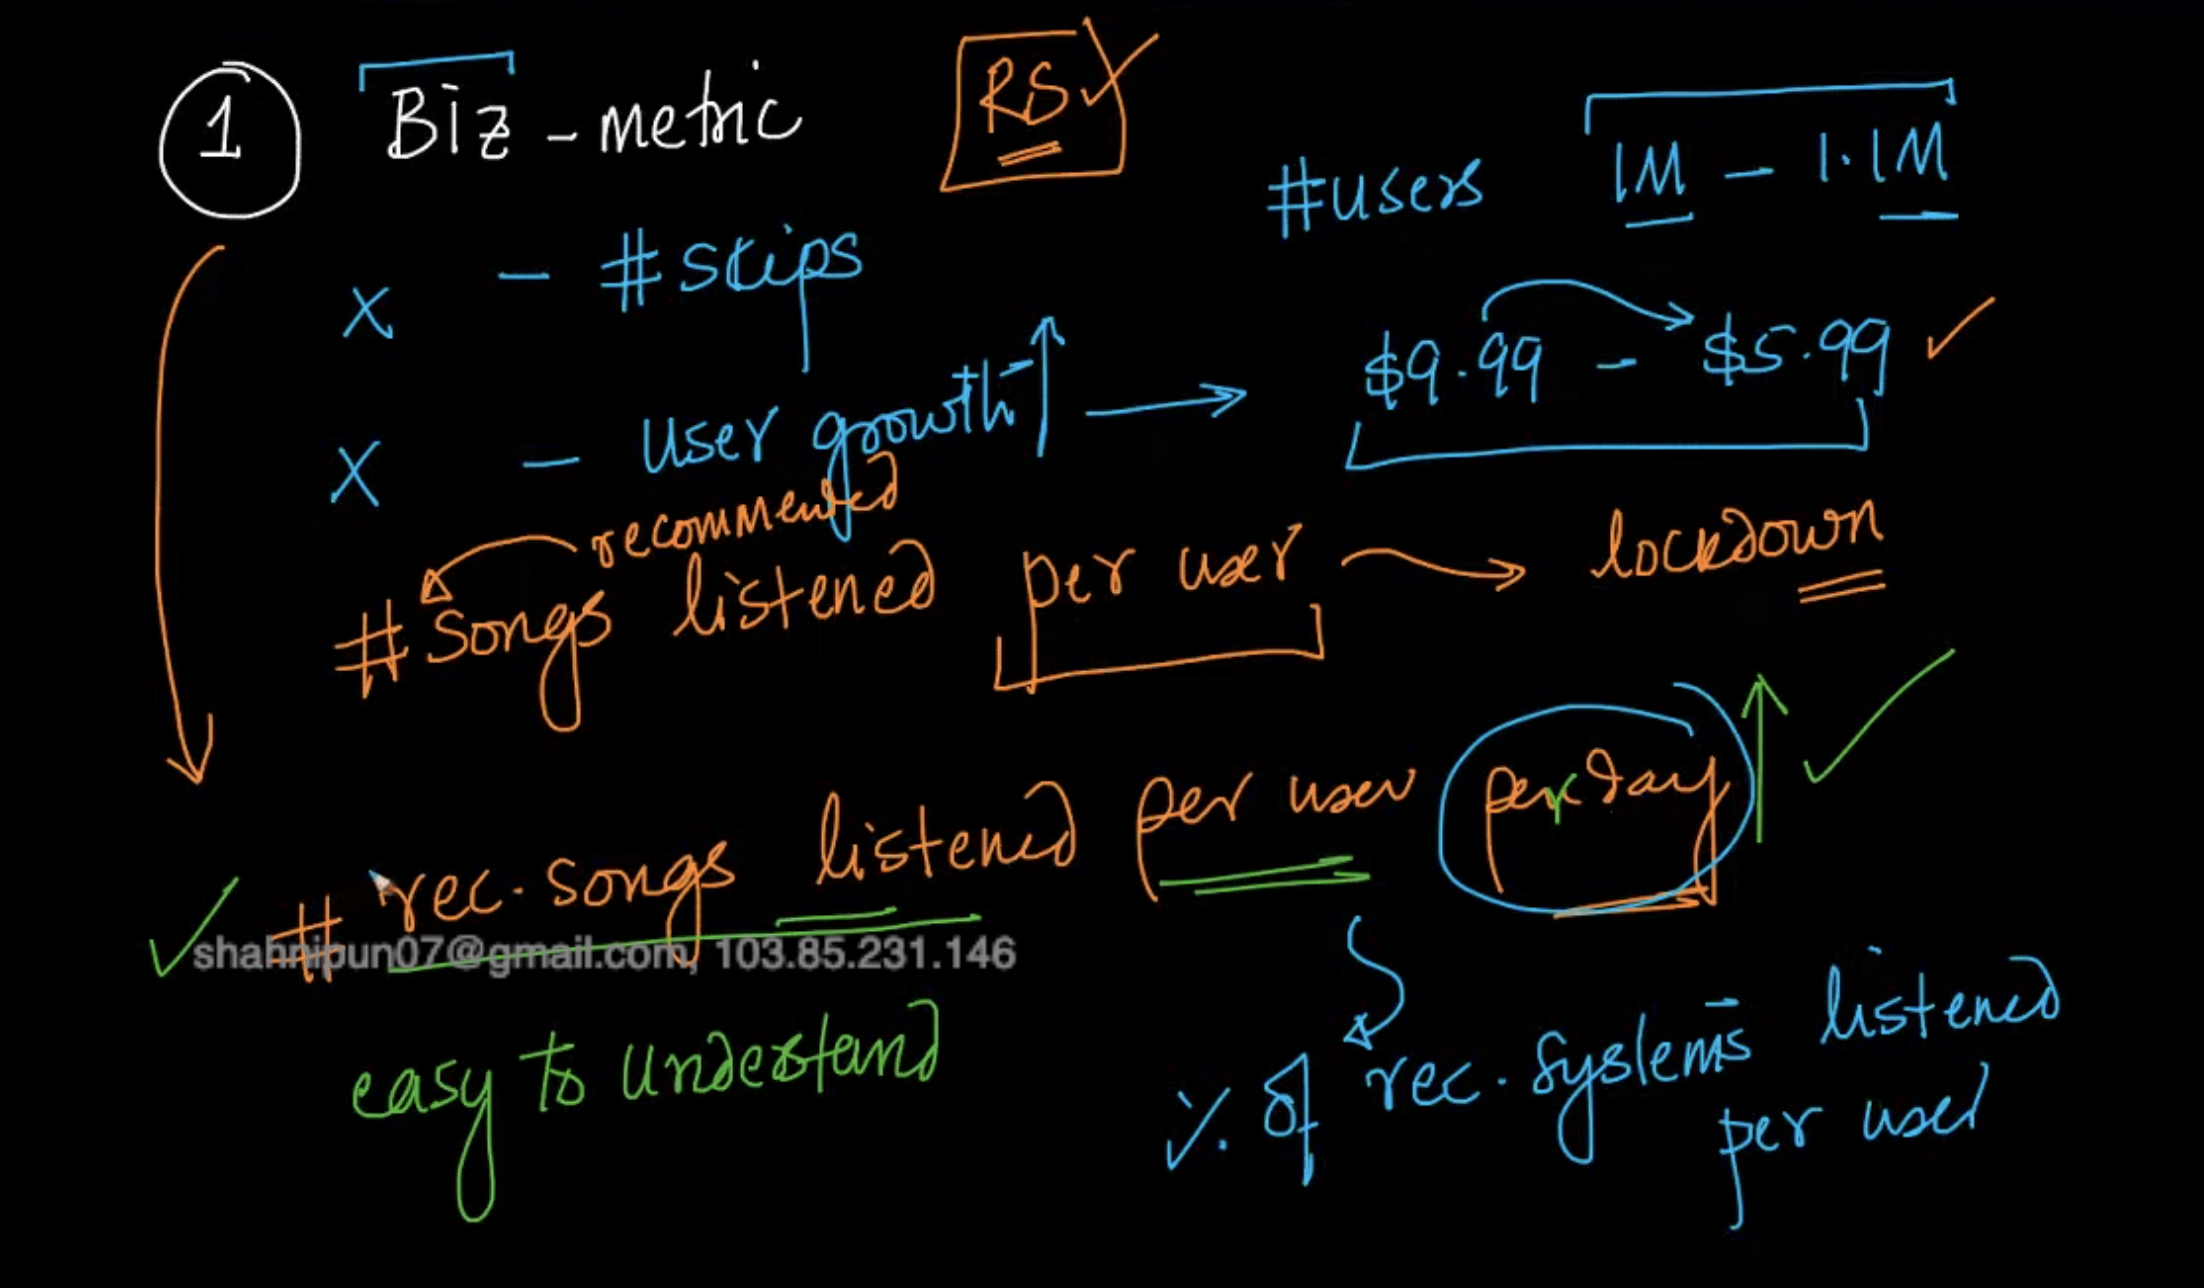 1 Biz - metric RS
#users 1M - 1.1M
x - #skips
$9.99 - $5.99
x - user growth
recommented
#songs listened per user lockdown
# rec. songs listened per user per day
shahnipun07@gmail.com, 103.85.231.146
easy to understand
% of rec. systems listened
per user